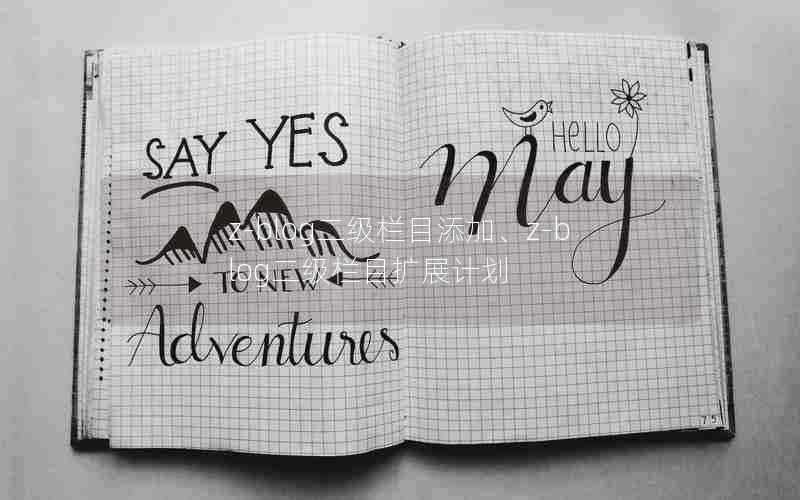 SAY YES
TO NEW
Adventures
HELLO
May
75
z-blog二级栏目添加、z-b
log二级栏目扩展计划